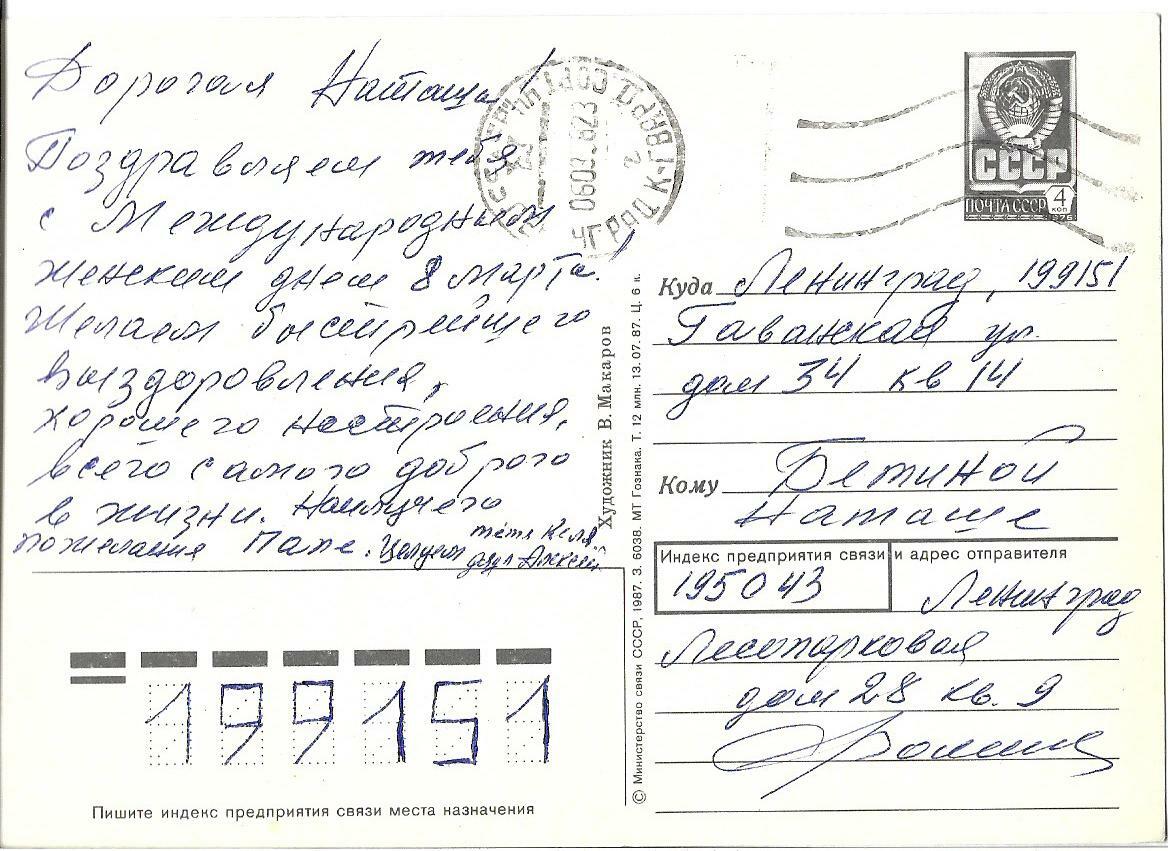 Дорогая Наташа!
Поздравляем тебя
с Международным
женским днем 8 марта!
Желаем быстрейшего
выздоровления,
хорошего настроения,
всего самого доброго
в жизни. Наилучшего
пожелания Папе. Целуем тётя Келя,
дядя Алексей
0603
СССР
ПОЧТА СССР
4
КОП
1976
Куда Ленинград, 199151
Гаванская ул.
дом 34 кв 14
Кому Бетиной
Наташе
Индекс предприятия связи и адрес отправителя
195043 Ленинград
Лесопарковая
дом 28 кв. 9
Художник В. Макаров
© Министерство связи СССР, 1987. З. 6038. МТ Гознака. Т. 12 млн. 13.07.87. Ц. 6 к.
199151
Пишите индекс предприятия связи места назначения